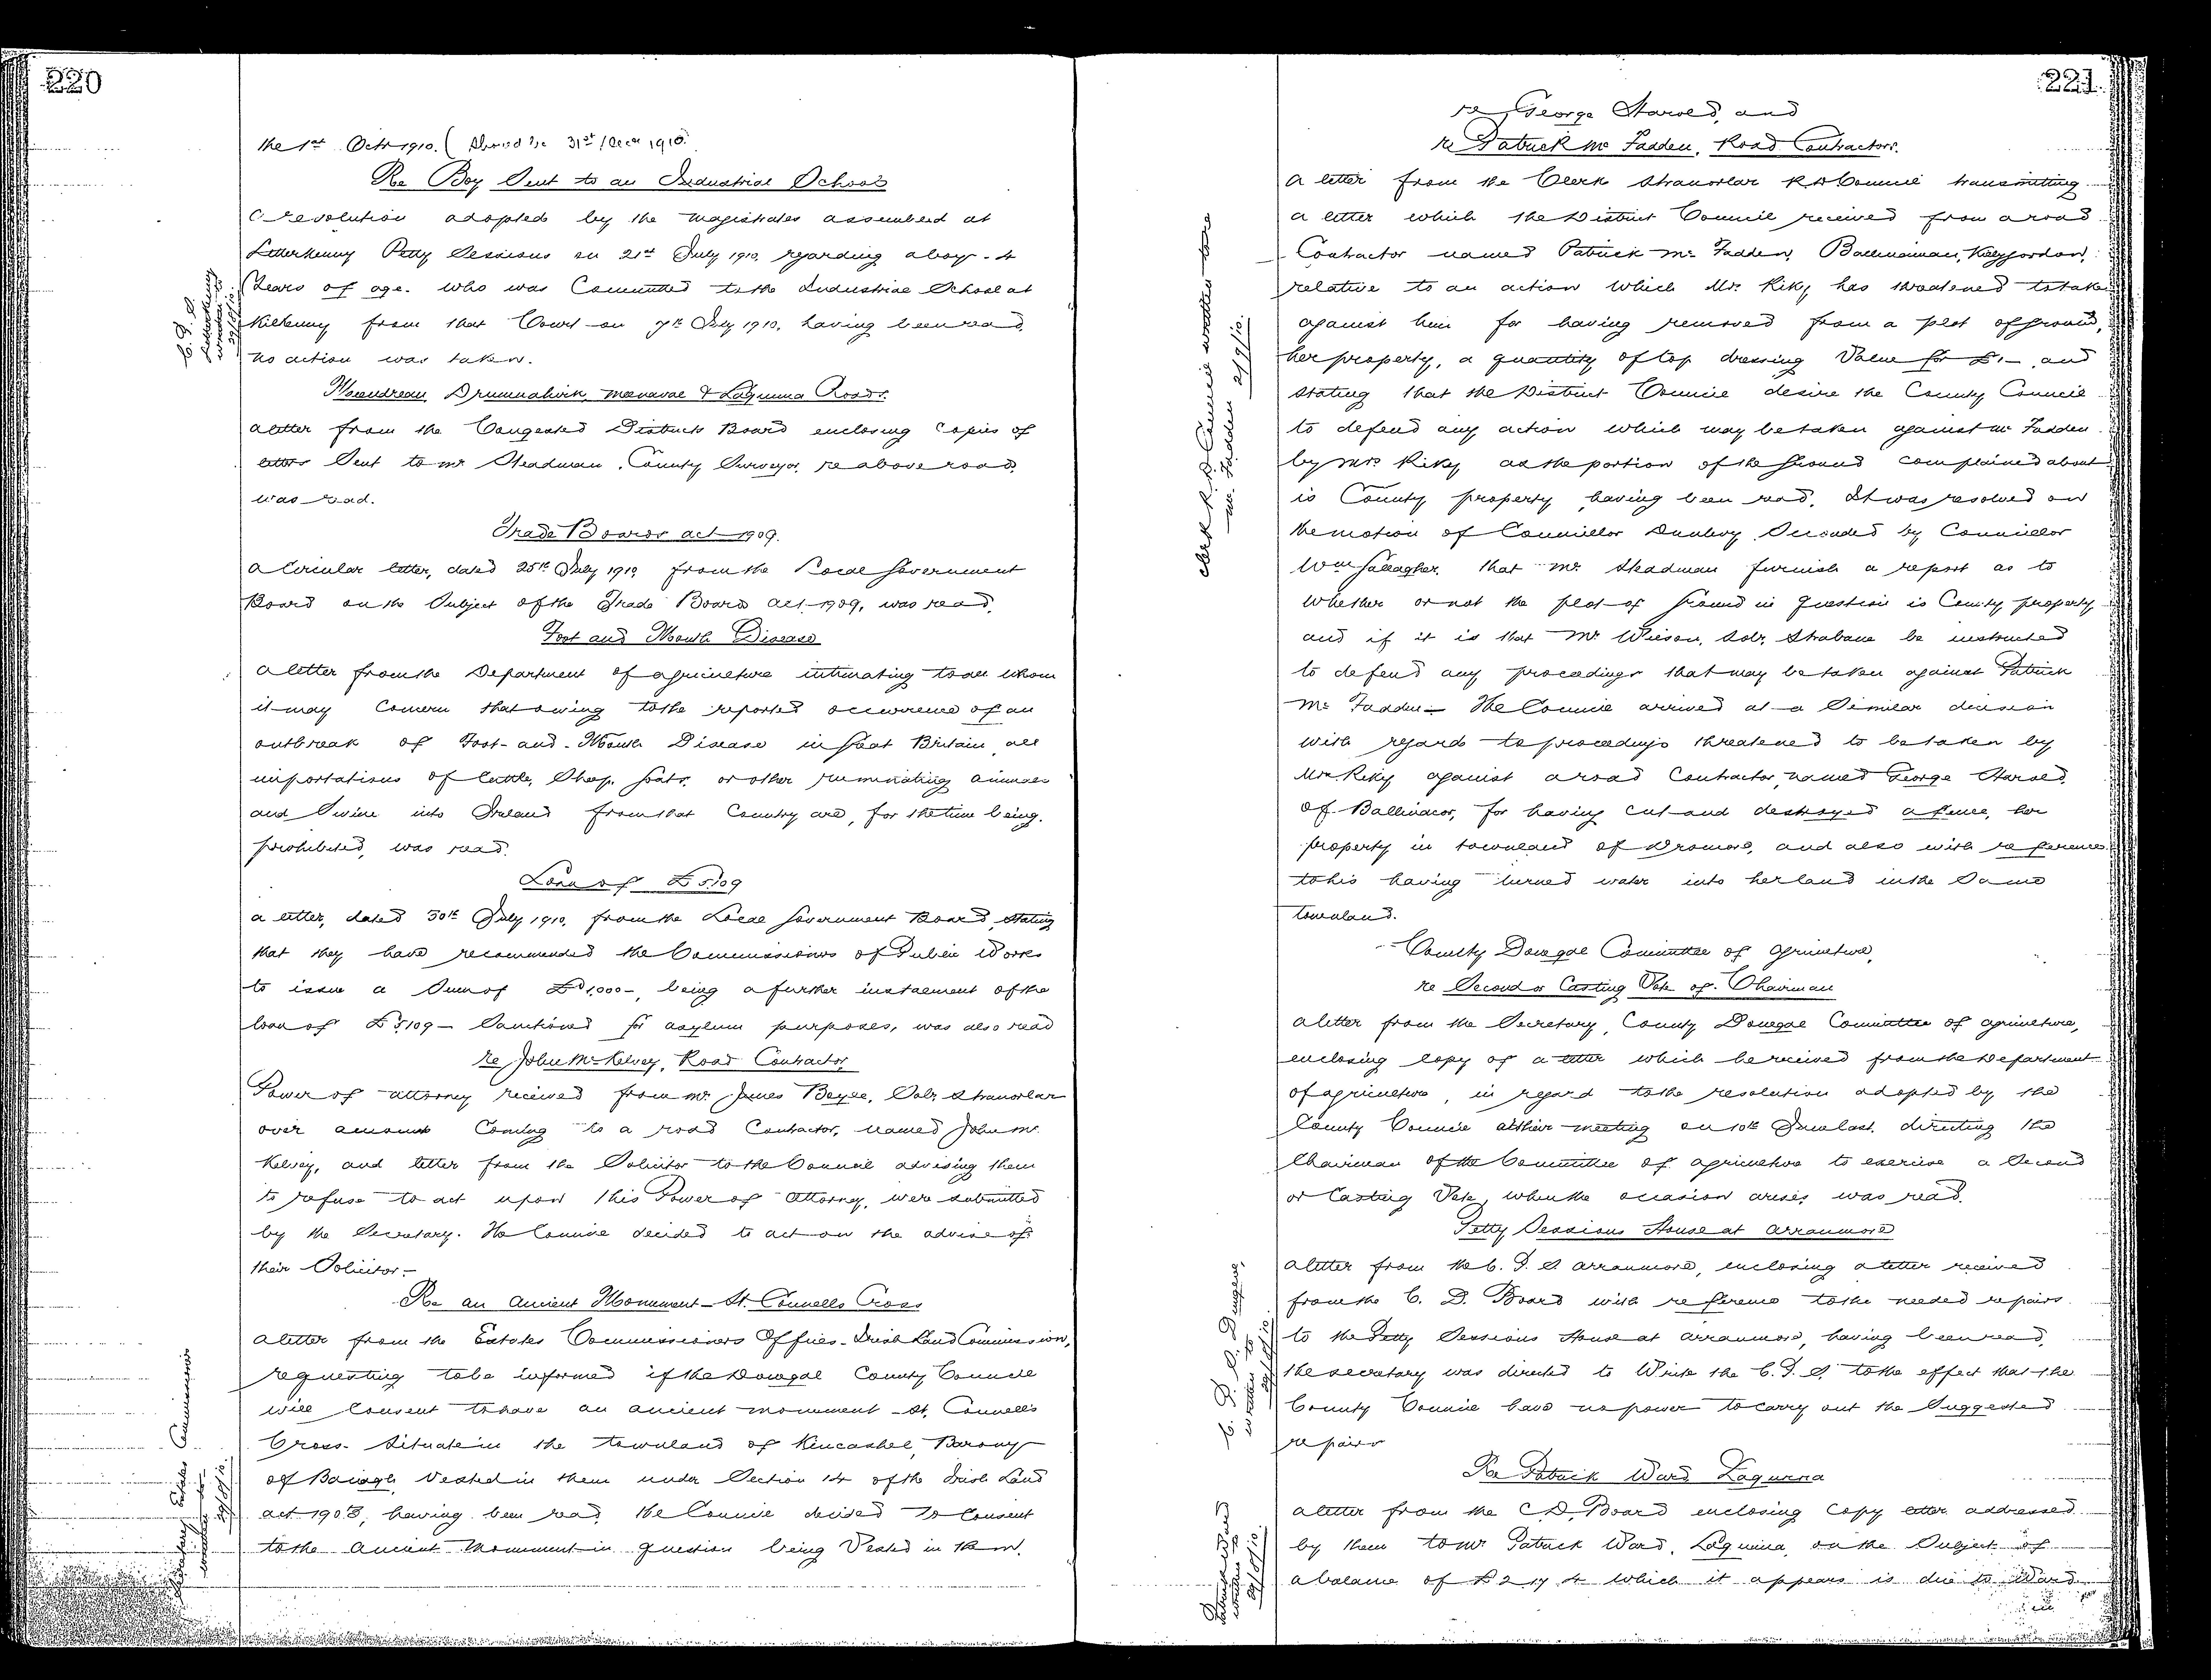 220
the 1st Octr 1910. ( Should be 31st Decr 1910.
Re Boy Sent to an Industrial School
A resolution adopted by the Magistrates assembled at
Letterkenny Petty Sessions on 21st July 1910, regarding a boy - 4
Years of age. who was Committed to the Industrial School at
Killkenny from that Court on 7th July 1910, having been read
no action was taken.
Meendrean, Drumnahivik, meenavae & Lagunna Roads.
A letter from the Congested Districts Board enclosing Copies of
letters Sent to Mr Steadman, County Surveyor, re above road,
was read.
Trade Boards Act 1909.
A Circular letter, dated 25th July 1910 from the Local Government
Board on the Subject of the Trade Boards Act 1909, was read.
Foot and Mouth Disease
A letter from the Department of Agriculture intimating to all whom
it may Concern that owing to the reported occurrence of an
outbreak of Foot-and-Mouth Disease in Great Britain, all
importations of Cattle, Sheep, Goats, or other ruminating animals
and Swine into Ireland from that Country are, for the time being,
prohibited, was read.
Loan of £5109
A letter, dated 30th July 1910, from the Local Government Board, Stating
that they have recommended the Commissioners of Public Works
to issue a Sum of £1,000-, being a further instalment of the
loan of £5109 - Sanctioned for asylum purposes, was also read
Re John McKelvey, Road Contractor
Power of attorney received from Mr James Boyle, Solr Stranorlar
over amount Coming to a road Contractor, named John Mc
Kelvey, and letter from the Solicitor to the Council advising them
to refuse to act upon this Power of Attorney, were submitted
by the Secretary. The Council decided to act on the advice of
their Solicitor.-
Re an Ancient Monument - St. Connells Cross
A letter from the Estates Commissioners Offices - Irish Land Commission,
requesting to be informed if the Donegal County Council
will Consent to have an ancient monument - St. Connell's
Cross - Situate in the townland of Kincashel, Barony
of Banagh, Vested in them under Section 14 of the Irish Land
Act 1903, having been read, the Council decided to Consent
to the Ancient Monument in question being Vested in them.
221
re George Harold, and
re Patrick Mc Fadden, Road Contractors.
A letter from the Clerk Stranorlar R D Council transmitting
a letter which the District Council received from a road
Contractor named Patrick Mc Fadden,
relative to an action which Mrs Riky has threatened to take
against him for having removed from a plot of ground,
her property, a quantity of top dressing Value for £1- and
stating that the District Council desire the County Council
to defend any action which may be taken against Mc Fadden
by Mrs Riky as the portion of the ground complained about
is County property, having been read, It was resolved on
the motion of Councillor Dunlevy Seconded by Councillor
Wm Gallagher, that Mr Steadman furnish a report as to
whether or not the plot of ground in question is County property
and if it is that Mr Wilson, Solr, Strabane be instructed
to defend any proceedings that may be taken against Patrick
Mc Fadden - The Council arrived at a Similar decision
with regard to proceedings threatened to be taken by
Mrs Riky against a road Contractor named George Harold
of Ballinacor, for having cut and destroyed a fence, her
property in townland of Dromore, and also with reference
to his having turned water into her land in the Same
townland.
County Donegal Committee of Agriculture,
re Second or Casting Vote of Chairman
A letter from the Secretary, County Donegal Committee of Agriculture,
enclosing Copy of a letter which he received from the Department
of Agriculture, in regard to the resolution adopted by the
County Council at their meeting on 10th June last, directing the
Chairman of the Committee of Agriculture to exercise a Second
or Casting Vote, when the occasion arises, was read.
Petty Sessions House at Arranmore
A letter from the C. P. S. Arranmore, enclosing a letter received
from the C. D. Board with reference to the needed repairs
to the Petty Sessions House at Arranmore, having been read,
the secretary was directed to Write the C. P. S. to the effect that the
County Council have no power to carry out the Suggested
repairs
Re Patrick Ward Lagunna
A letter from the C.D. Board enclosing Copy letter addressed
by them to Mr Patrick Ward, Lagunna, on the Subject of
a balance of £2 17 4 which it appears is due to Ward